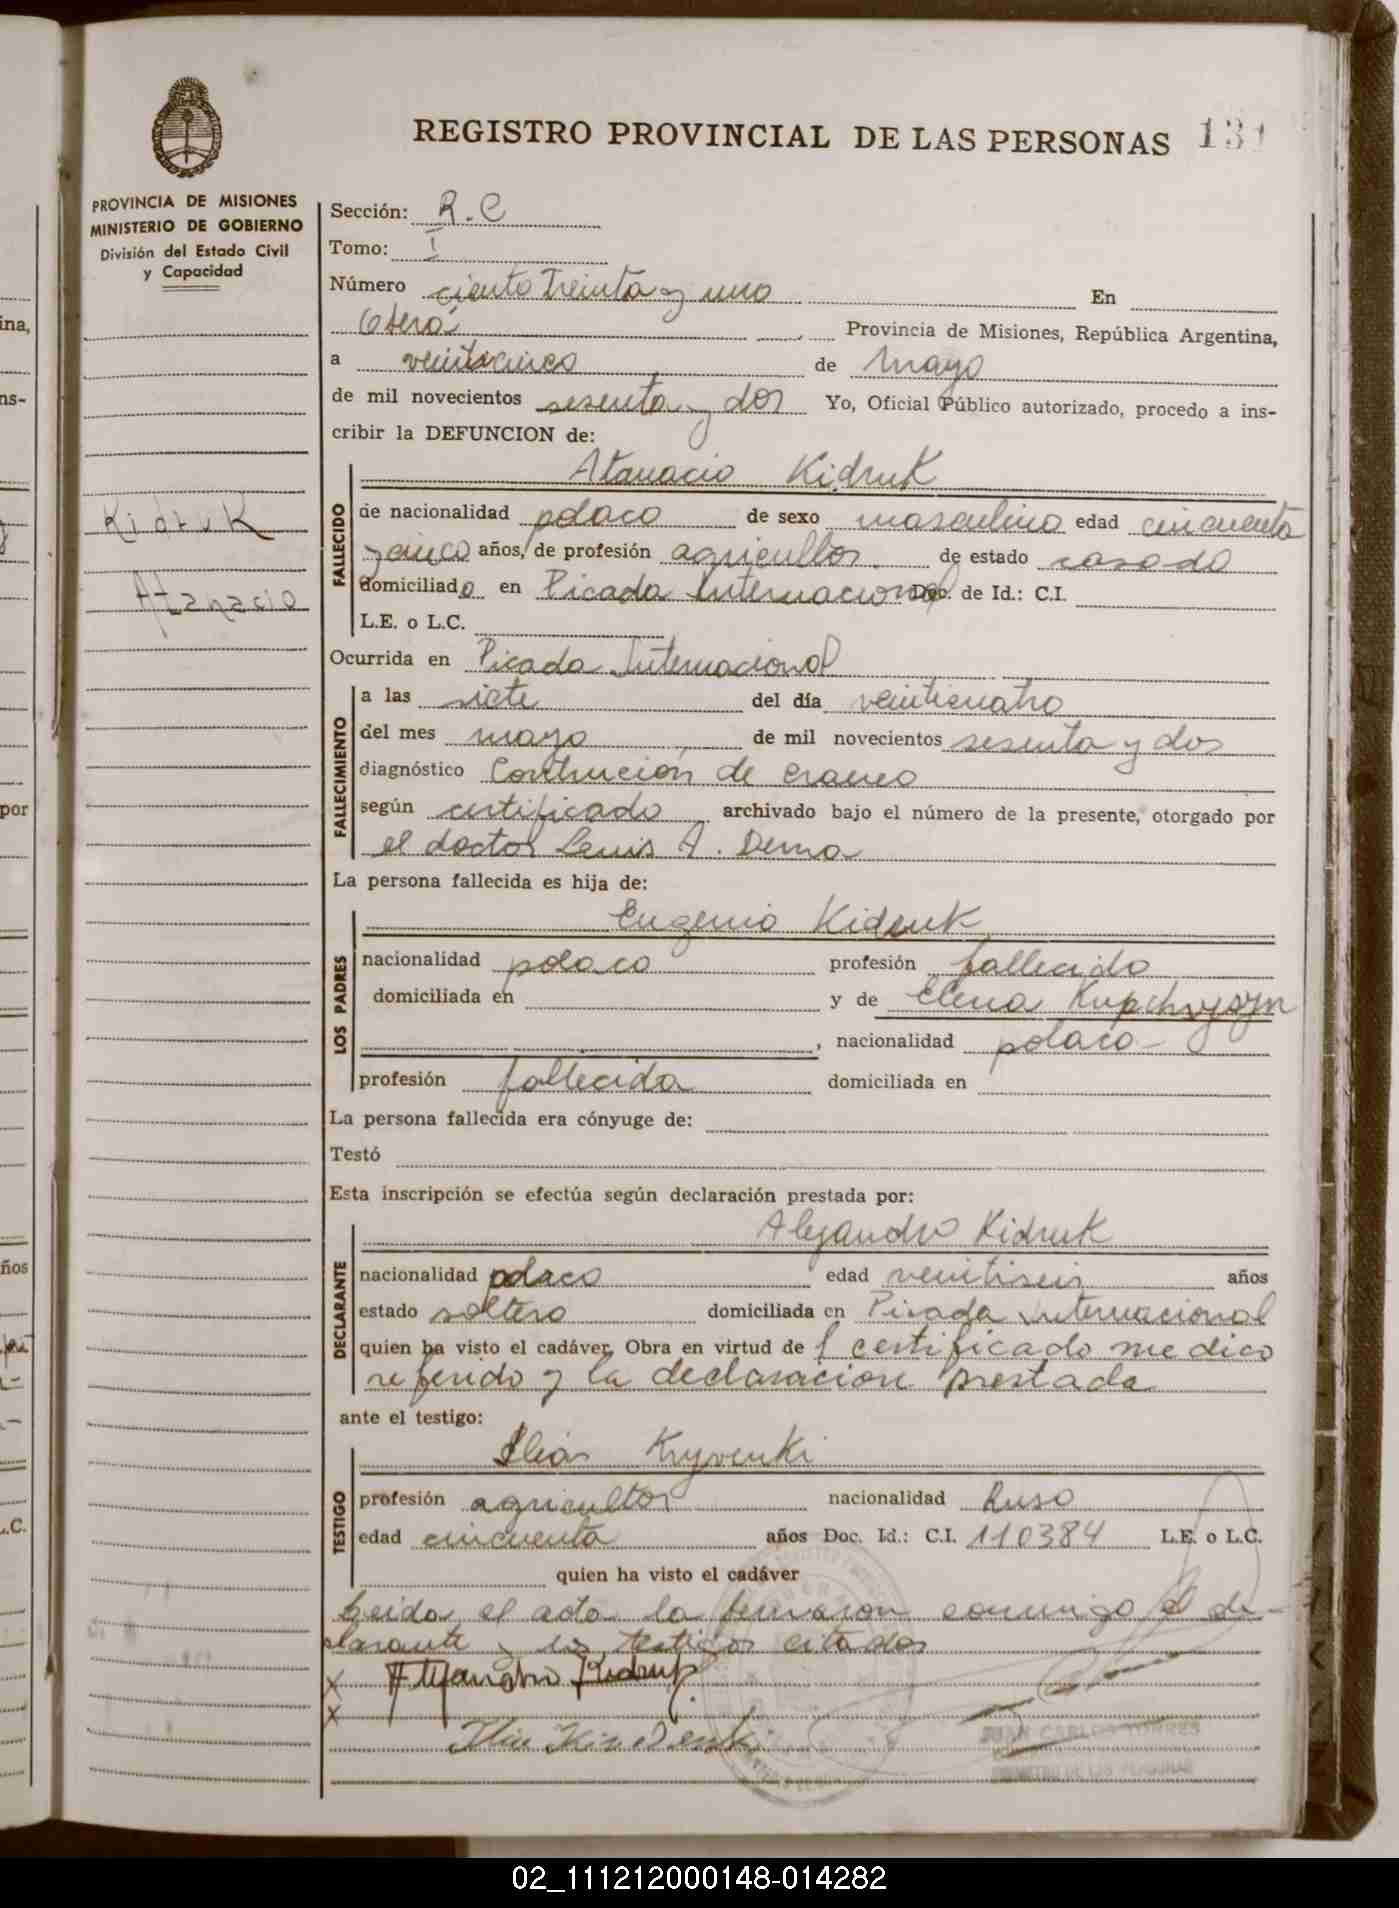 REGISTRO PROVINCIAL DE LAS PERSONAS 131
PROVINCIA DE MISIONES
MINISTERIO DE GOBIERNO
División del Estado Civil
y Capacidad
Kidruk
Atanacio
Sección: R.C
Tomo: I
Número ciento Treinta y uno En
Oberá Provincia de Misiones, República Argentina,
a veinticinco de Mayo
de mil novecientos sesenta y dos Yo, Oficial Público autorizado, procedo a ins-
cribir la DEFUNCION de:
Atanacio Kidruk
FALLECIDO
de nacionalidad polaco de sexo masculino edad cincuenta
y cinco años, de profesión agricultor de estado casado
domiciliado en Picada Internacional Doc. de Id.: C.I.
L.E. o L.C.
Ocurrida en Picada Internacional
FALLECIMIENTO
a las siete del día veinticuatro
del mes mayo de mil novecientos sesenta y dos
diagnóstico de craneo
según certificado archivado bajo el número de la presente, otorgado por
el doctor A.
La persona fallecida es hija de:
Eugenio Kidruk
LOS PADRES
nacionalidad polaco profesión fallecido
domiciliada en y de Elena
, nacionalidad polaco -
profesión fallecida domiciliada en
La persona fallecida era cónyuge de:
Testó
Esta inscripción se efectúa según declaración prestada por:
Alejandro Kidruk
DECLARANTE
nacionalidad polaco edad veintiseis años
estado soltero domiciliada en Picada Internacional
quien ha visto el cadáver. Obra en virtud de l certificado medico
referido y la declaracion prestada
ante el testigo:
TESTIGO
profesión agricultor nacionalidad Ruso
edad cincuenta años Doc. Id.: C.I. 110384 L.E. o L.C.
quien ha visto el cadáver
Leida el acta la firmaron conmigo el de-
clarante y los testigos citados
x Alejandro Kidruk
x
JUAN CARLOS TORRES
02_111212000148-014282